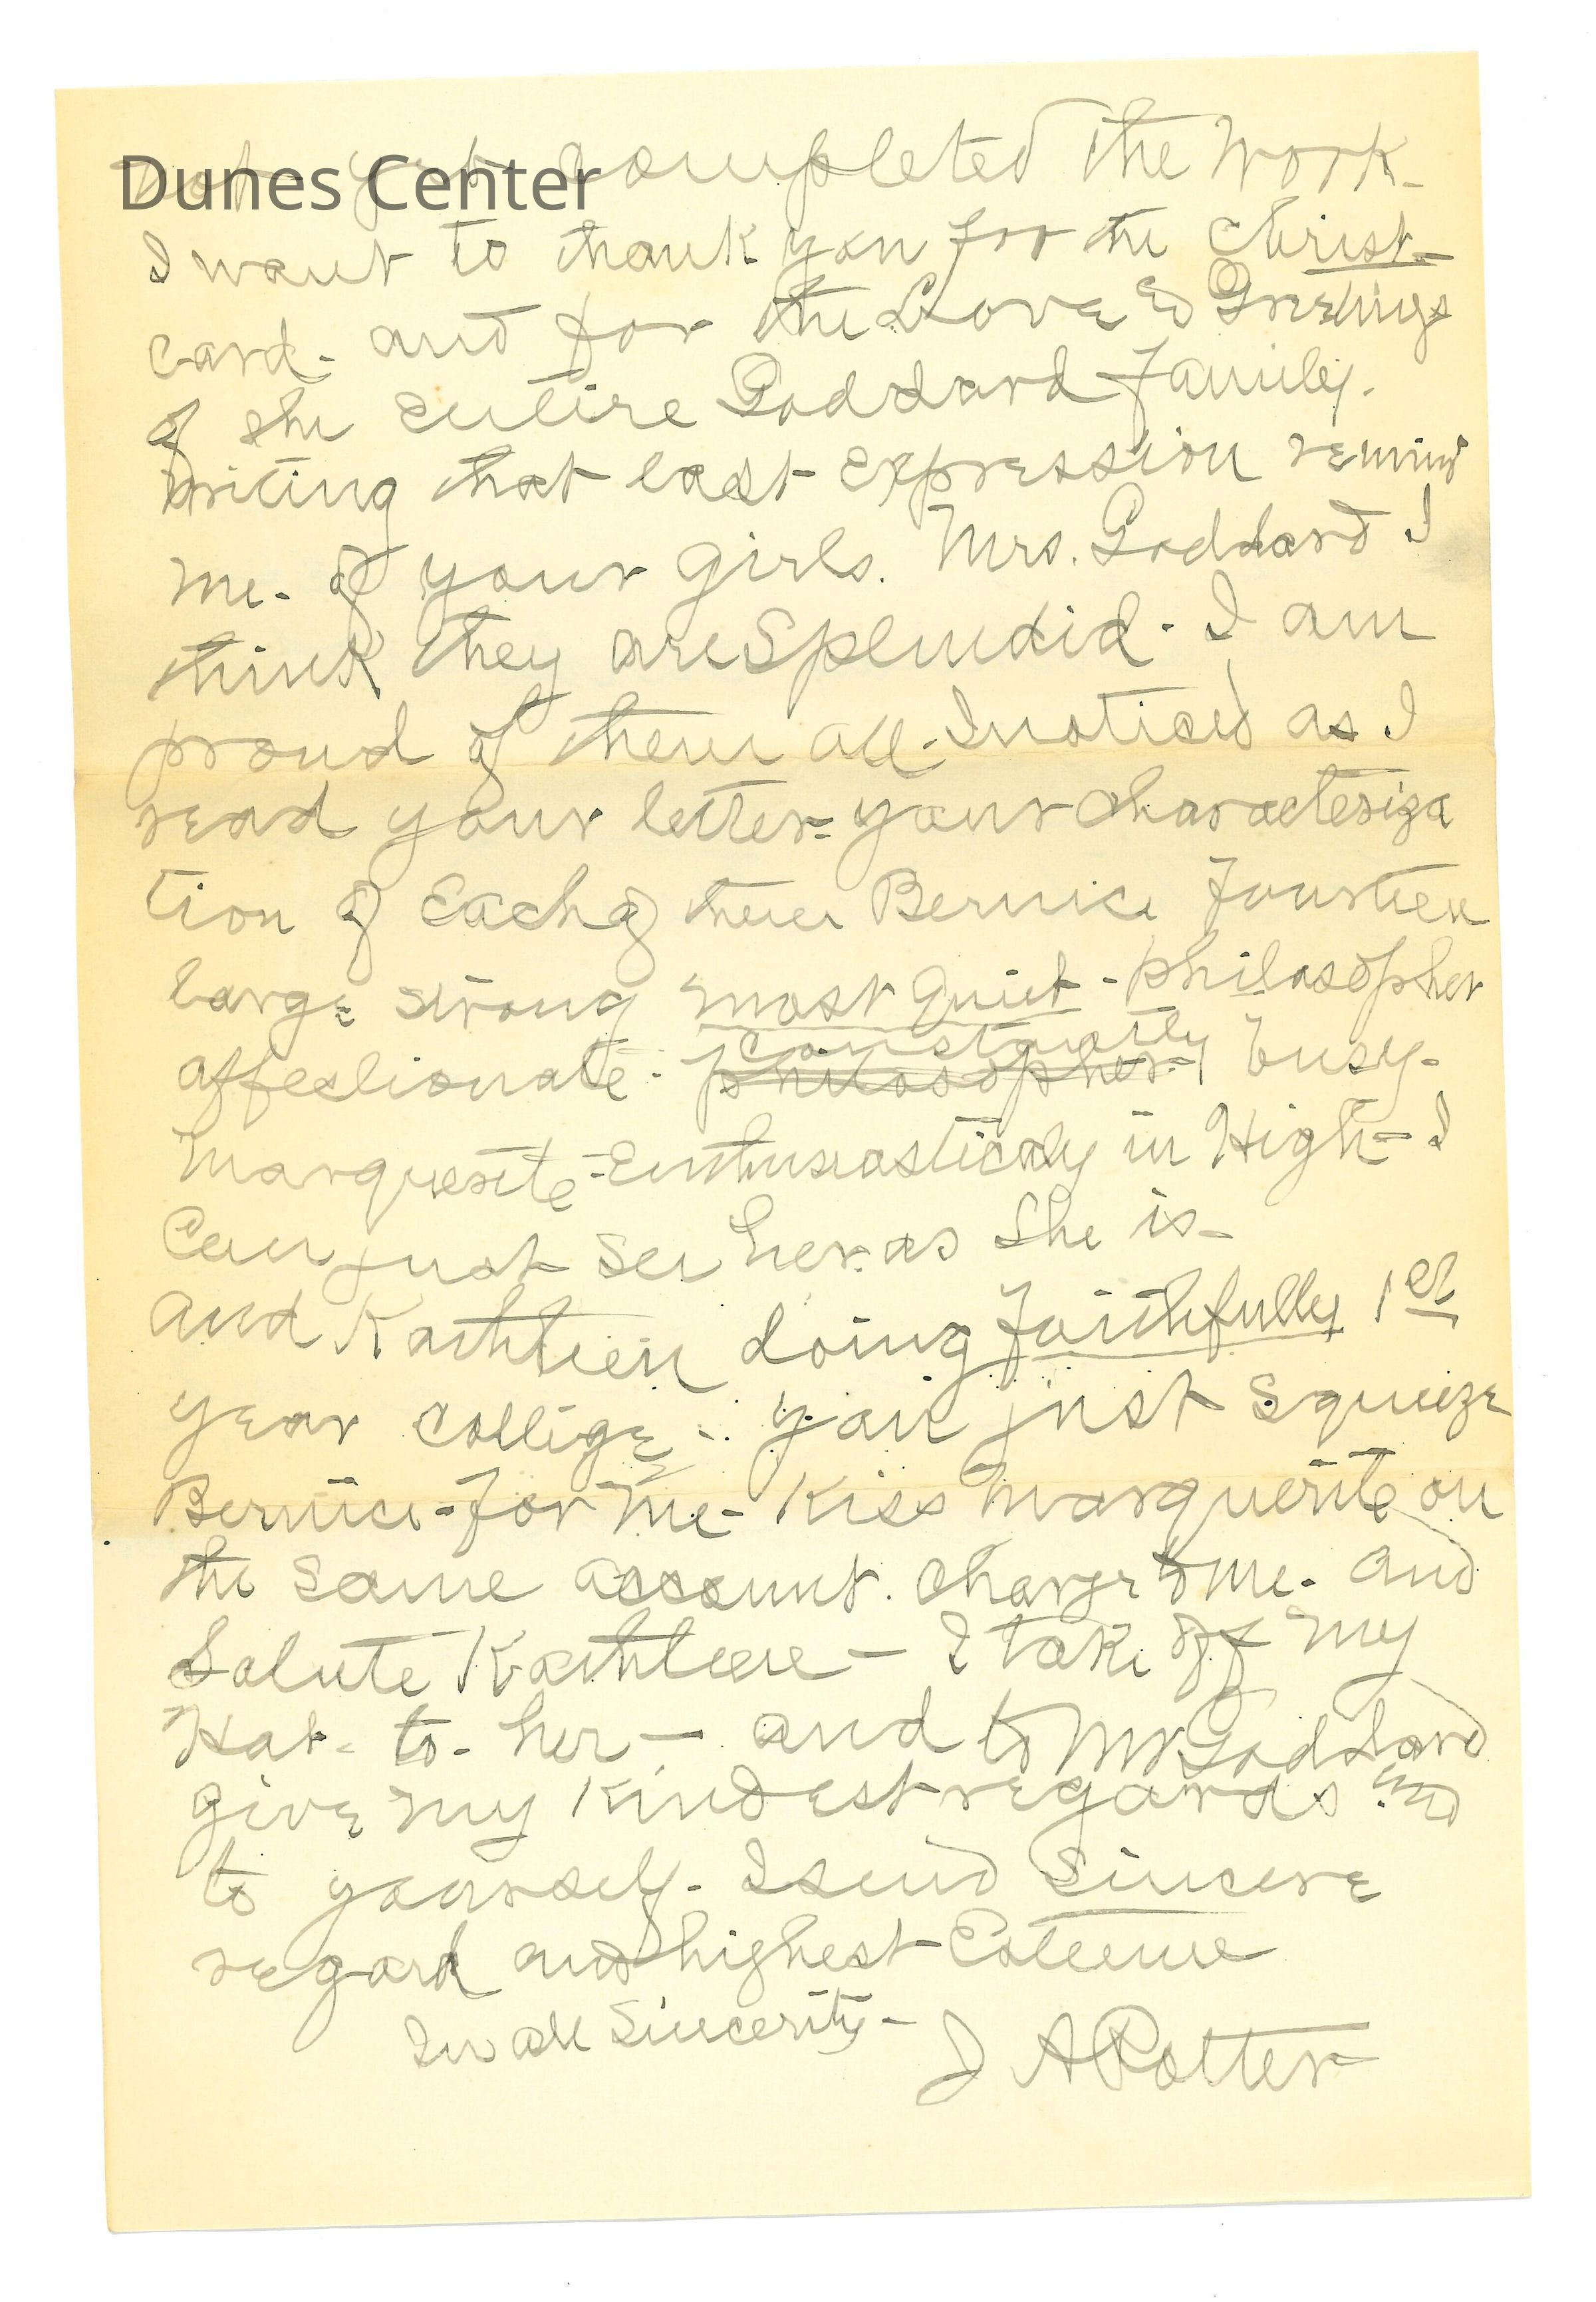 Dunes Center
not yet completed the Work-
I want to thank you for the Christ-
card- and for the Love & Greetings
of the entire Goddard Family.
Writing that last expression remind
me- of your girls. Mrs. Goddard I
think they are Splendid- I am
proud of them all- I noticed as I
read your letter- your characteriza
tion of Each of them Bernice Fourteen
large strong most quiet - philosopher
constantly
affectionate- philosopher- busy-
Marguerite- Enthusiasticaly in High- I
Can just see her- as She is-
and Kathleen doing Faithfully 1st
year college- you just squeeze
Bernice- for me- Kiss Marguerite on
the same account. charge to me- and
Salute Kathleen - I take off my
Hat- to- her - and to Mr Goddard
give my Kindest regards and
to yourself- I send Sincere
regard and highest Esteeme
In all Sincerity-
J A Potter